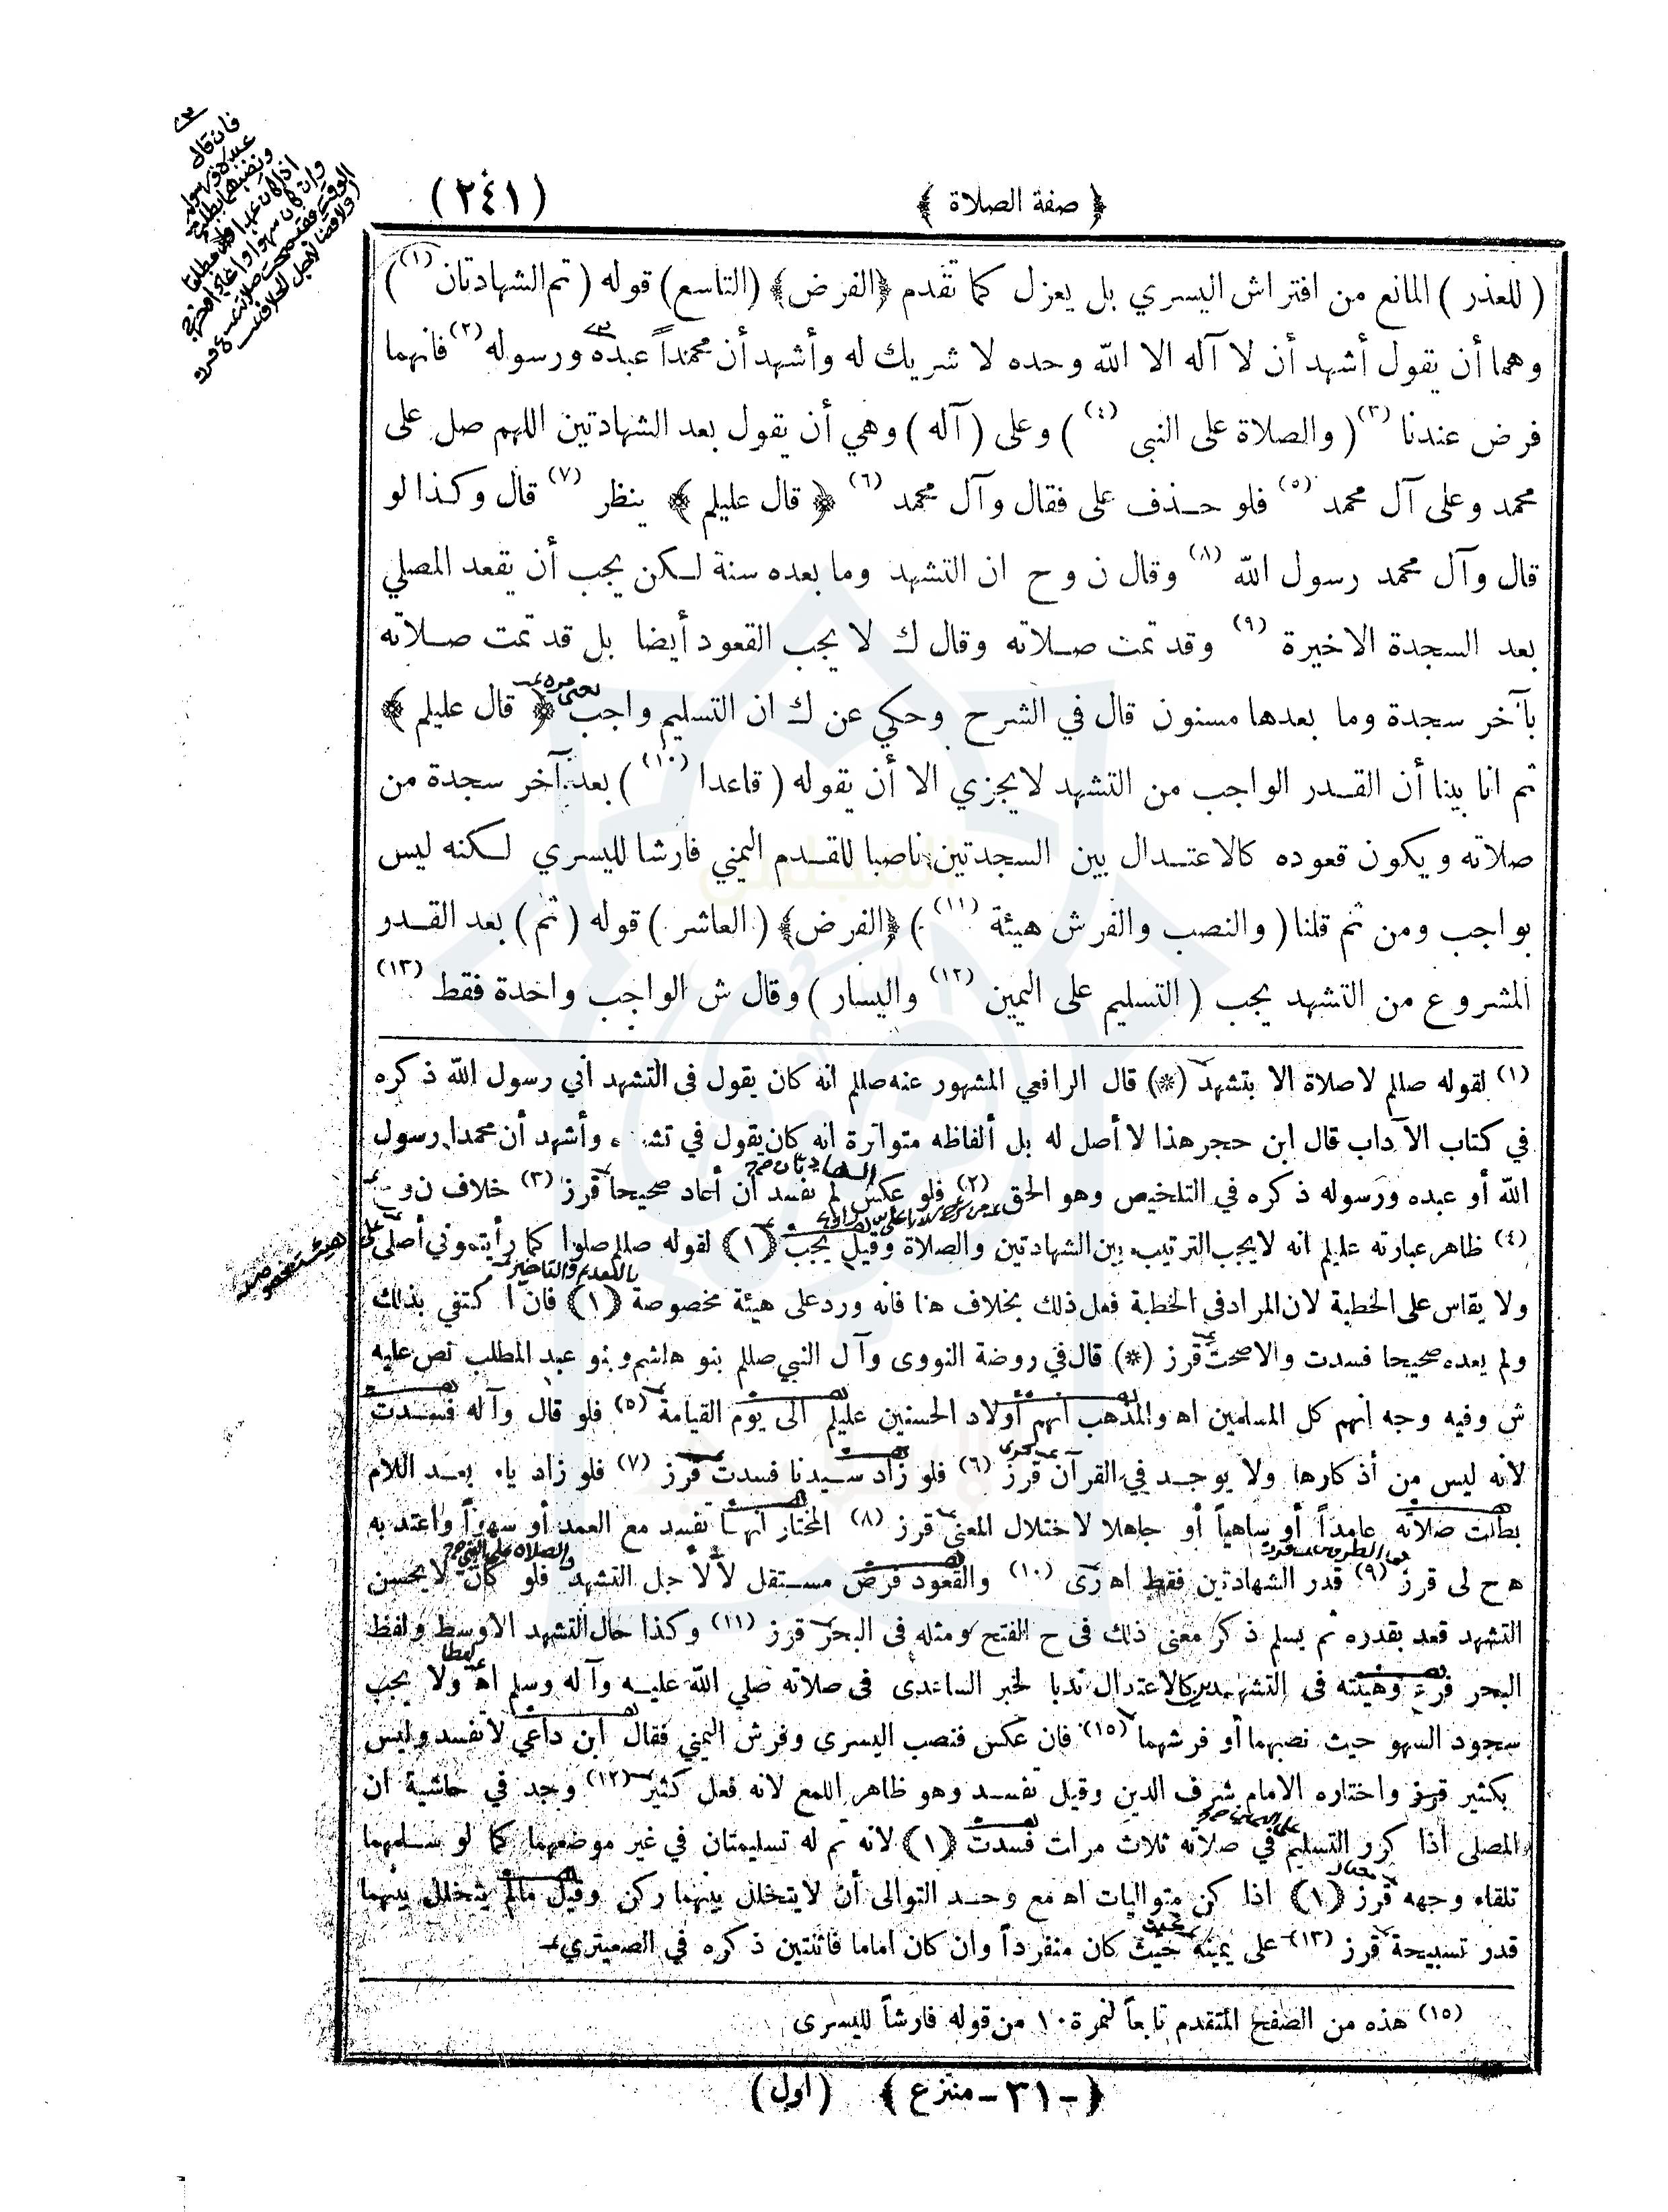 ﴿ صفة الصلاة ﴾
(٢٤١)
( للعذر ) المانع من افتراش اليسري بل يعزل كما تقدم ﴿الفرض﴾ (التاسع) قوله ( ثم الشهادتان (١) )
وهما أن يقول أشهد أن لا آله الا الله وحده لا شريك له وأشهد أن محمداً عبده ورسوله (٢) فانهما
فرض عندنا (٣) ( والصلاة على النبى (٤) ) وعلى ( آله ) وهي أن يقول بعد الشهادتين اللهم صل على
محمد وعلى آل محمد (٥) فلو حـذف على فقال وآل محمد (٦) ﴿ قال عليلم ﴾ ينظر (٧) قال وكذا لو
قال وآل محمد رسول الله (٨) وقال ن و ح ان التشهد وما بعده سنة لـكن يجب أن يقعد المصلي
بعد السجدة الاخيرة (٩) وقد تمت صـلاته وقال ك لا يجب القعود أيضا بل قد تمت صـلاته
بآخر سجدة وما بعدها مسنون قال في الشرح وحكي عن ك ان التسليم واجب ﴿ قال عليلم ﴾
ثم انا بينا أن القـدر الواجب من التشهد لا يجزي الا أن يقوله ( قاعدا (١٠) ) بعد آخر سجدة من
صلاته ويكون قعوده كالاعتـدال بين السجدتين ناصبا للقـدم اليمني فارشا لليسري لـكنه ليس
بواجب ومن ثم قلنا ( والنصب والفرش هيئة (١١) ) ﴿الفرض﴾ ( العاشر ) قوله ( ثم ) بعد القـدر
المشروع من التشهد يجب ( التسليم على اليمين (١٢) واليسار ) وقال ش الواجب واحدة فقط (١٣)
(١) لقوله صللم لا صلاة الا بتشهد (*) قال الرافعي المشهور عنه صللم انه كان يقول فى التشهد أني رسول الله ذكره
في كتاب الآداب قال ابن حجر هذا لا أصل له بل ألفاظه متواترة انه كان يقول في وأشهد أن محمدا رسول
الله أو عبده ورسوله ذكره في التلخيص وهو الحق (٢) فلو عكس لم تفسد ان أعاد صحيحا قرز (٣) خلاف ن و
(٤) ظاهر عبارته عليلم انه لا يجب الترتيب بين الشهادتين والصلاة وقيل يجب (١) لقوله صللم صلوا كما رأيتموني أصلى
ولا يقاس على الخطبة لان المراد في الخطبة فعل ذلك بخلاف هنا فانه ورد على هيئة مخصوصة (١) فان اكتفي بذلك
ولم يعده صحيحا فسدت والا صحت قرز (*) قال في روضة النووى وآل النبي صللم بنو هاشم وبنو عبد المطلب نص عليه
ش وفيه وجه انهم كل المسلمين اه والمذهب انهم أولاد الحسنين عليلم الى يوم القيامة (٥) فلو قال وآله فسـدت
لانه ليس من أذكارها ولا يوجـد في القرآن قرز (٦) فلو زاد سـيدنا فسدت قرز (٧) فلو زاد ياء بعـد اللام
بطلت صلاته عامداً أو ساهياً أو جاهلا لاختلال المعنى قرز (٨) المختار انهـا تفسد مع العمد أو سهواً واعتد به
اه ح لى قرز (٩) قدر الشهادتين فقط اه رى (١٠) والقعود فرض مسـتقل لا لاجل التشهد فلو كان لا يحسن
التشهد قعد بقدره ثم يسلم ذكر معنى ذلك فى ح الفتح ومثله فى البحر قرز (١١) وكذا حال التشهد الاوسط ولفظ
البحر وهيئته فى التشهدين كالاعتدال ندبا لخبر الساعدى فى صلاته صلي الله عليـه وآله وسلم اه ولا يجب
سجود السهو حيث نصبهما أو فرشهما (١٥) فان عكس فنصب اليسرى وفرش اليمني فقال ابن داعي لا تفسد وليس
بكثير قرز واختاره الامام شرف الدين وقيل تفسد وهو ظاهر اللمع لانه فعل كثير (١٢) وجد في حاشية ان
المصلى اذا كرر التسليم في صلاته ثلاث مرات فسدت (١) لانه ثم له تسليمتان في غير موضعهما كما لو سـلمهما
تلقاء وجهه قرز (١) اذا كن متواليات اه مع وحـد التوالى أن لا يتخلل بينهما ركن وقيل مالم يتخلل بينهما
قدر تسبيحة قرز (١٣) على يمينه حيث كان منفرداً وان كان اماما فاثنتين ذكره في الصعيترى
(١٥) هذه من الصفح المتقدم تابعاً لنمرة ١٠ من قوله فارشاً لليسرى
﴿ -٣١- منتزع ﴾ ( اول )